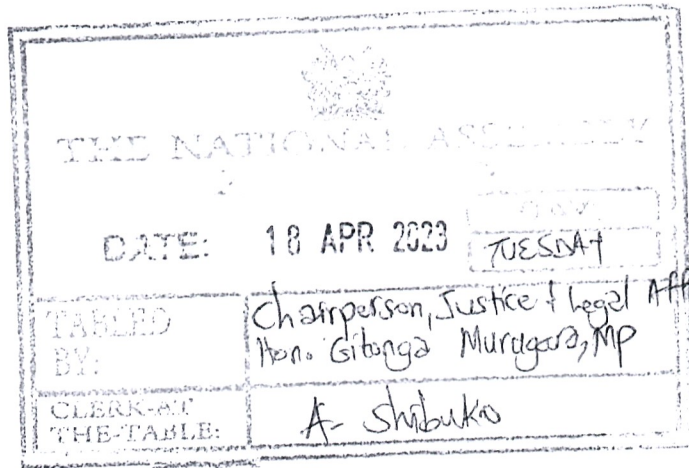 THE NATIONAL ASSEMBLY
DAY.
DATE: 18 APR 2023 TUESDAY
TABLED BY: Chairperson, Justice & Legal Aff
Hon. Gitonga Murugara, MP
CLERK-AT
THE-TABLE: A- Shibuko